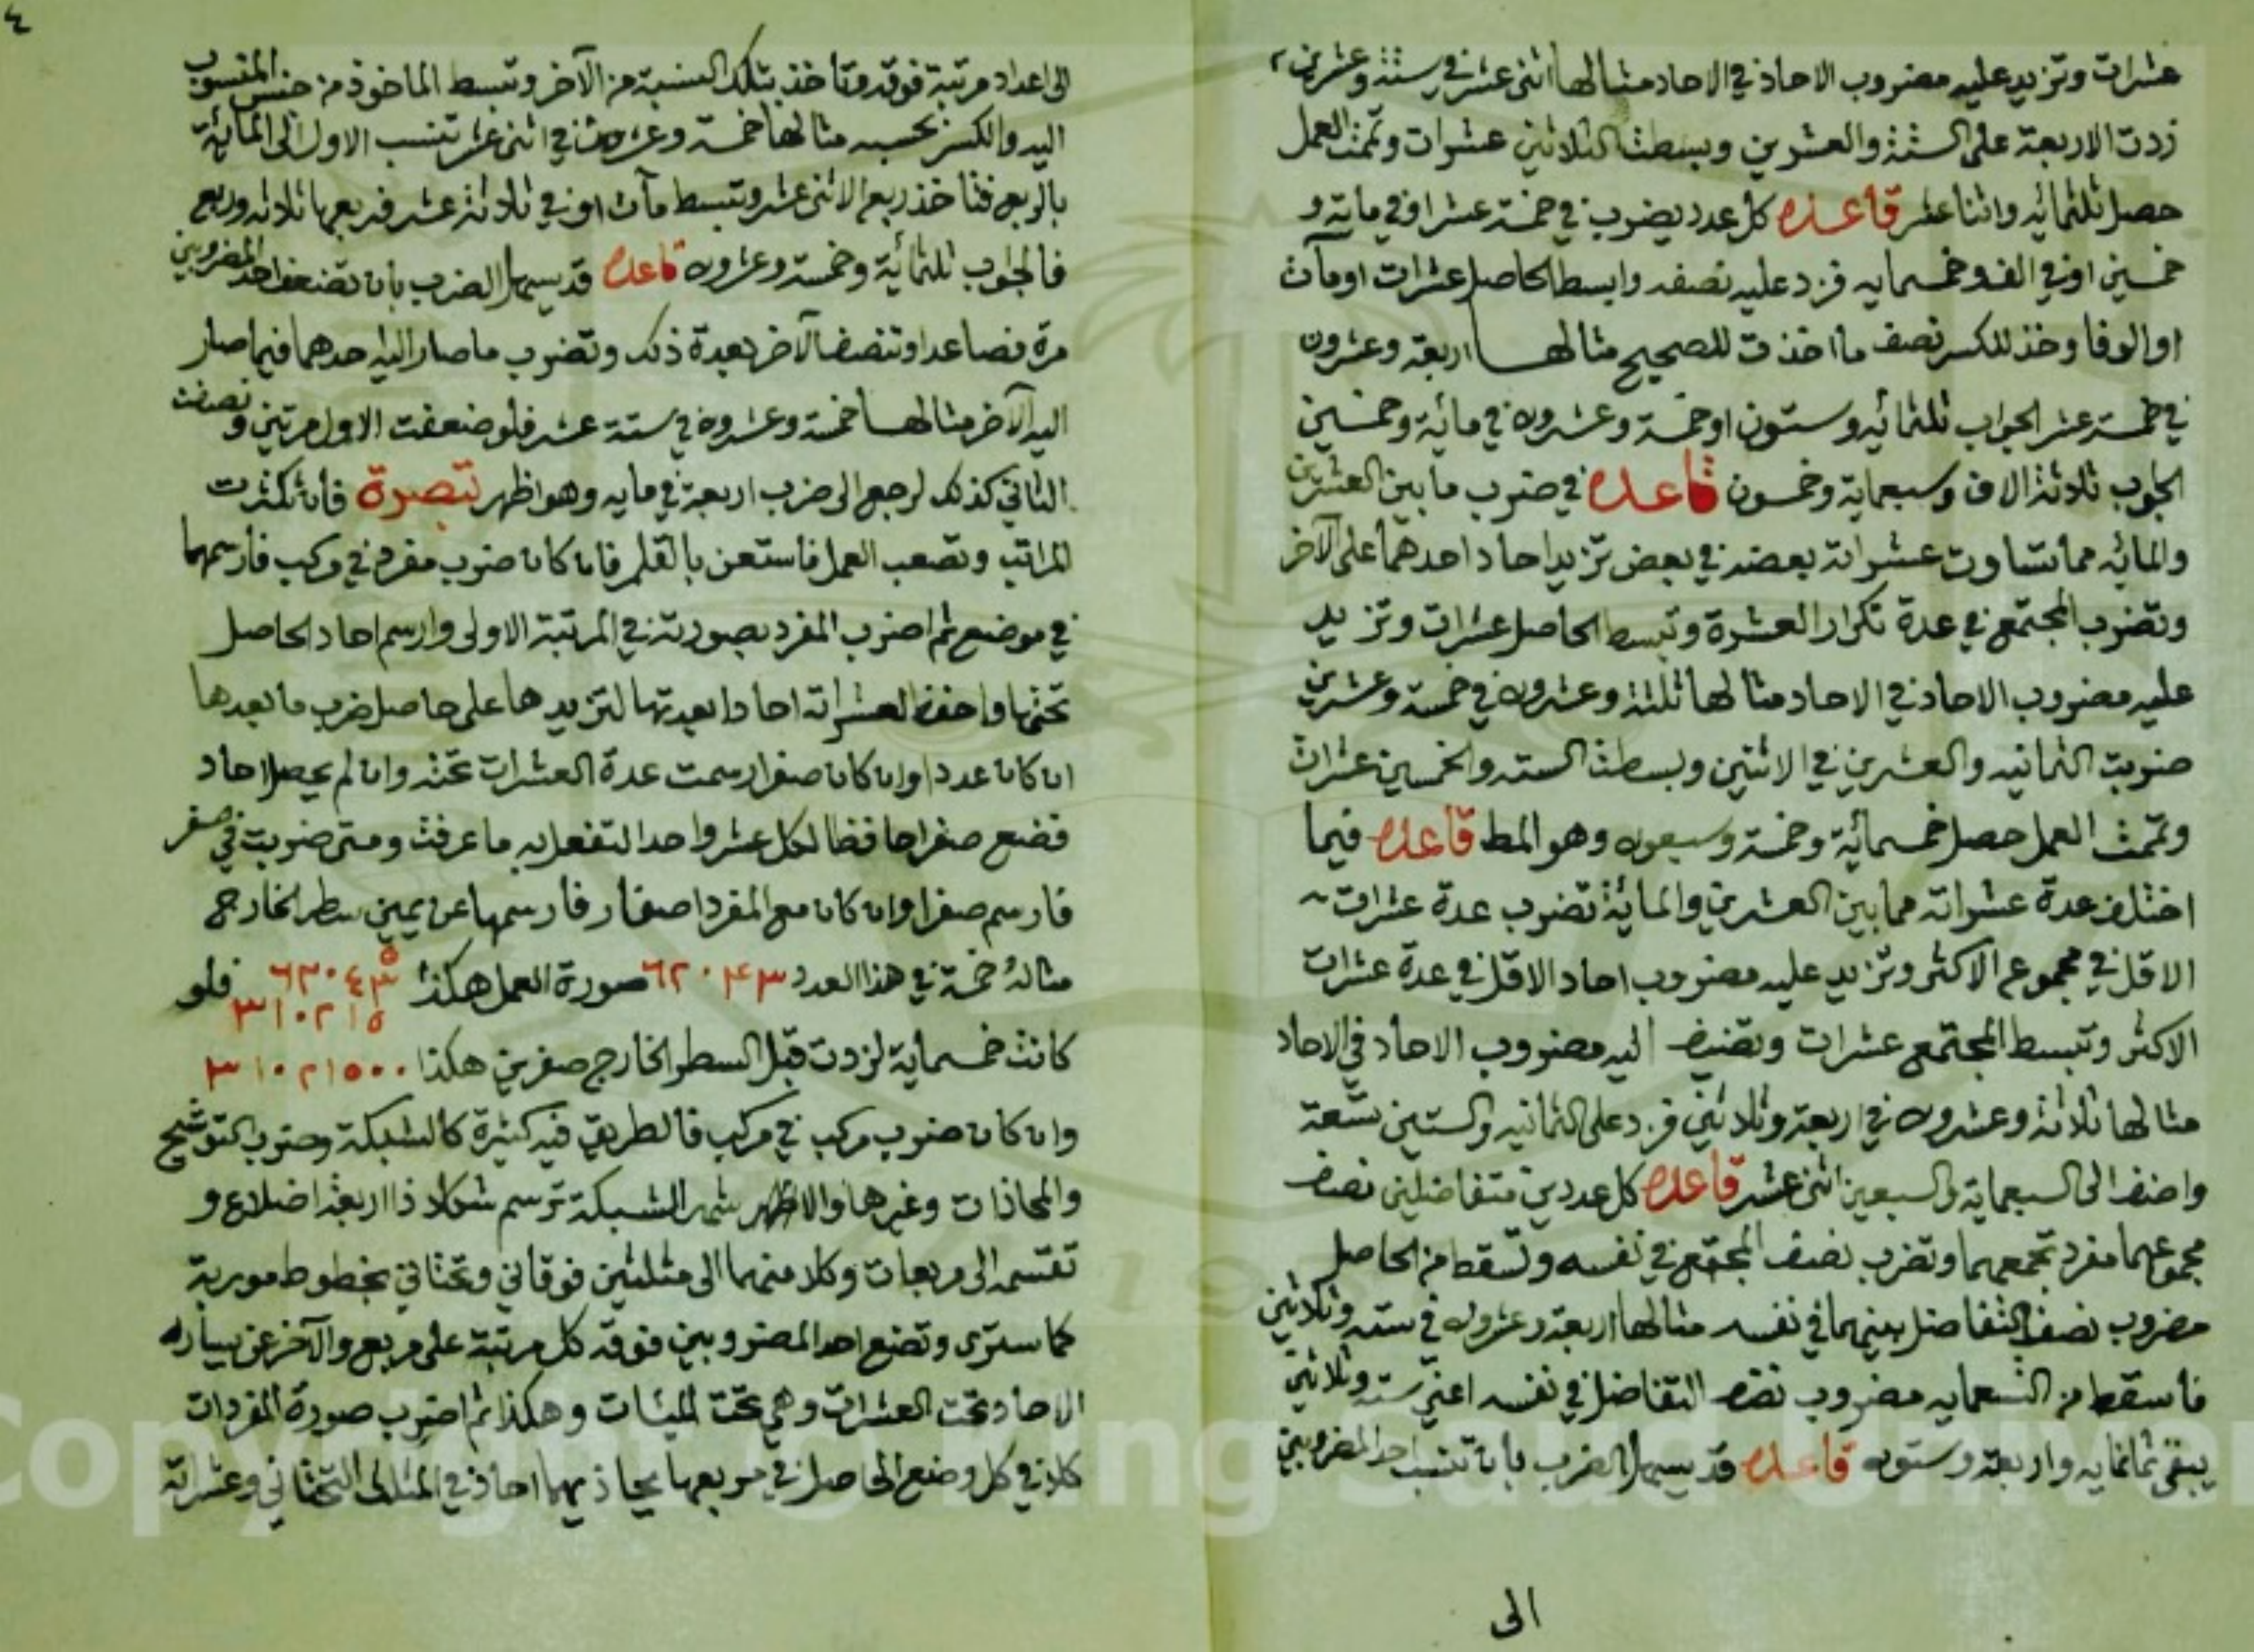 عشرات وتزيد عليه مضروب الاحاد في الاحاد مثالها اثنى عشر في ستة وعشرين
زدت الاربعة على الستة والعشرين وبسطت الثلاثين عشرات وتممت العمل
حصل ثلثمائه واثنا عشر قاعده كل عدد يضرب في خمسة عشر او في ماية و
خمسين او في الف وخمسمايه فزد عليه نصفه وابسط الحاصل عشرات او مآت
او الوفا وخذ للكسر نصف ما اخذت للصحيح مثالها اربعة وعشرون
في خمسة عشر الجواب ثلثمائيه وستون او خمسة وعشرون في مائة وخمسين
الجواب ثلاثة الاف وسبعماية وخمسون قاعده في ضرب ما بين العشرين
والمائه مما تساوت عشراته بعضه في بعض تزيد احاد احدهما على الآخر
وتضرب المجتمع في عدة تكرار العشرة وتبسط الحاصل عشرات وتزيد
عليه مضروب الاحاد في الاحاد مثالها ثلثة وعشرون في خمسة وعشرين
ضربت الثمانيه والعشرين في الاثنين وبسطت السته والخمسين عشرات
وتممت العمل حصل خمسمائة وخمسة وسبعون وهو المط قاعده فيما
اختلف عدة عشراته مما بين العشرين والماية تضرب عدة عشرات
الاقل في مجموع الاكثر وتزيد عليه مضروب احاد الاقل في عدة عشرات
الاكثر وتبسط المجتمع عشرات وتضيف اليه مضروب الاحاد في الاحاد
مثالها ثلاثة وعشرون في اربعة وثلاثين فزد على الثمانيه والستين تسعة
واضف الى السبعماية والسبعين اثنى عشر قاعده كل عددين متفاضلين نصف
مجموعهما مفرد تجمعهما وتضرب نصف المجتمع في نفسه وتسقط من الحاصل
مضروب نصف التفاضل بينهما في نفسه مثالها اربعة وعشرون في سته وثلاثين
فاسقط من التسعمايه مضروب نصف التفاضل في نفسه اعني سته وثلاثين
يبقى ثمانمايه واربعة وستون قاعده قد يسهل الضرب بان تنسب احد المضروبين
الى
٤
الى اعداد مرتبة فوقه وتاخذ بتلك النسبة من الآخر وتبسط الماخوذ من جنس المنسوب
اليه والكسر بحسبه مثالها خمسة وعشرون في اثنى عشر تنسب الاول الى المائة
بالربع فتاخذ ربع الاثنى عشر وتبسط مآت او في ثلاثة عشر فربعها ثلاثه وربع
فالجواب ثلثمائة وخمسة وعشرون قاعده قد يسهل الضرب بان تضعف احد المضروبين
مرة فصاعدا وتنصف الآخر بعدة ذلك وتضرب ما صار اليه احدهما فيما صار
اليه الآخر مثالها خمسة وعشرون في ستة عشر فلو ضعفت الاول مرتين ونصفت
الثاني كذلك لرجع الى ضرب اربعة في مايه وهو اظهر تبصرة فان تكثرت
المراتب وتصعب العمل فاستعن بالقلم فان كان ضرب مفرد في مركب فارسمهما
في موضع ثم اضرب المفرد بصورته في المرتبة الاولى وارسم احاد الحاصل
تحتها واحفظ لعشراته احادا بعدتها لتزيدها على حاصل ضرب ما بعدها
ان كان عددا وان كان صفرا رسمت عدة العشرات تحته وان لم يحصل احاد
فضع صفرا حافظا لكل عشر واحدا لتفعل به ما عرفت ومتى ضربت في صفر
فارسم صفرا وان كان مع المفرد اصفار فارسمها عن يمين سطر الخارج
مثاله خمسة في هذا العدد ٦٢٠٤٣ صورة العمل هكذا ٥ ٦٢٠٤٣ ٣١٠٢١٥ فلو
كانت خمسماية لزدت قبل السطر الخارج صفرين هكذا ٣١٠٢١٥٠٠
وان كان ضرب مركب في مركب فالطريق فيه كثيرة كالشبكة وضرب التوشيح
والمحاذات وغيرها والاظهر الشبكة ترسم شكلا ذا اربعة اضلاع و
تقسمه الى مربعات وكلا منهما الى مثلثين فوقاني وتحتاني بخطوط موربة
كما سترى وتضع احد المضروبين فوقه كل مرتبة على مربع والآخر عن يساره
الاحاد تحت العشرات وهي تحت المئات وهكذا ثم اضرب صورة المفردات
كلا في كل وضع الحاصل في مربعها يحاذيهما احاده في المثلث التحتاني وعشراته